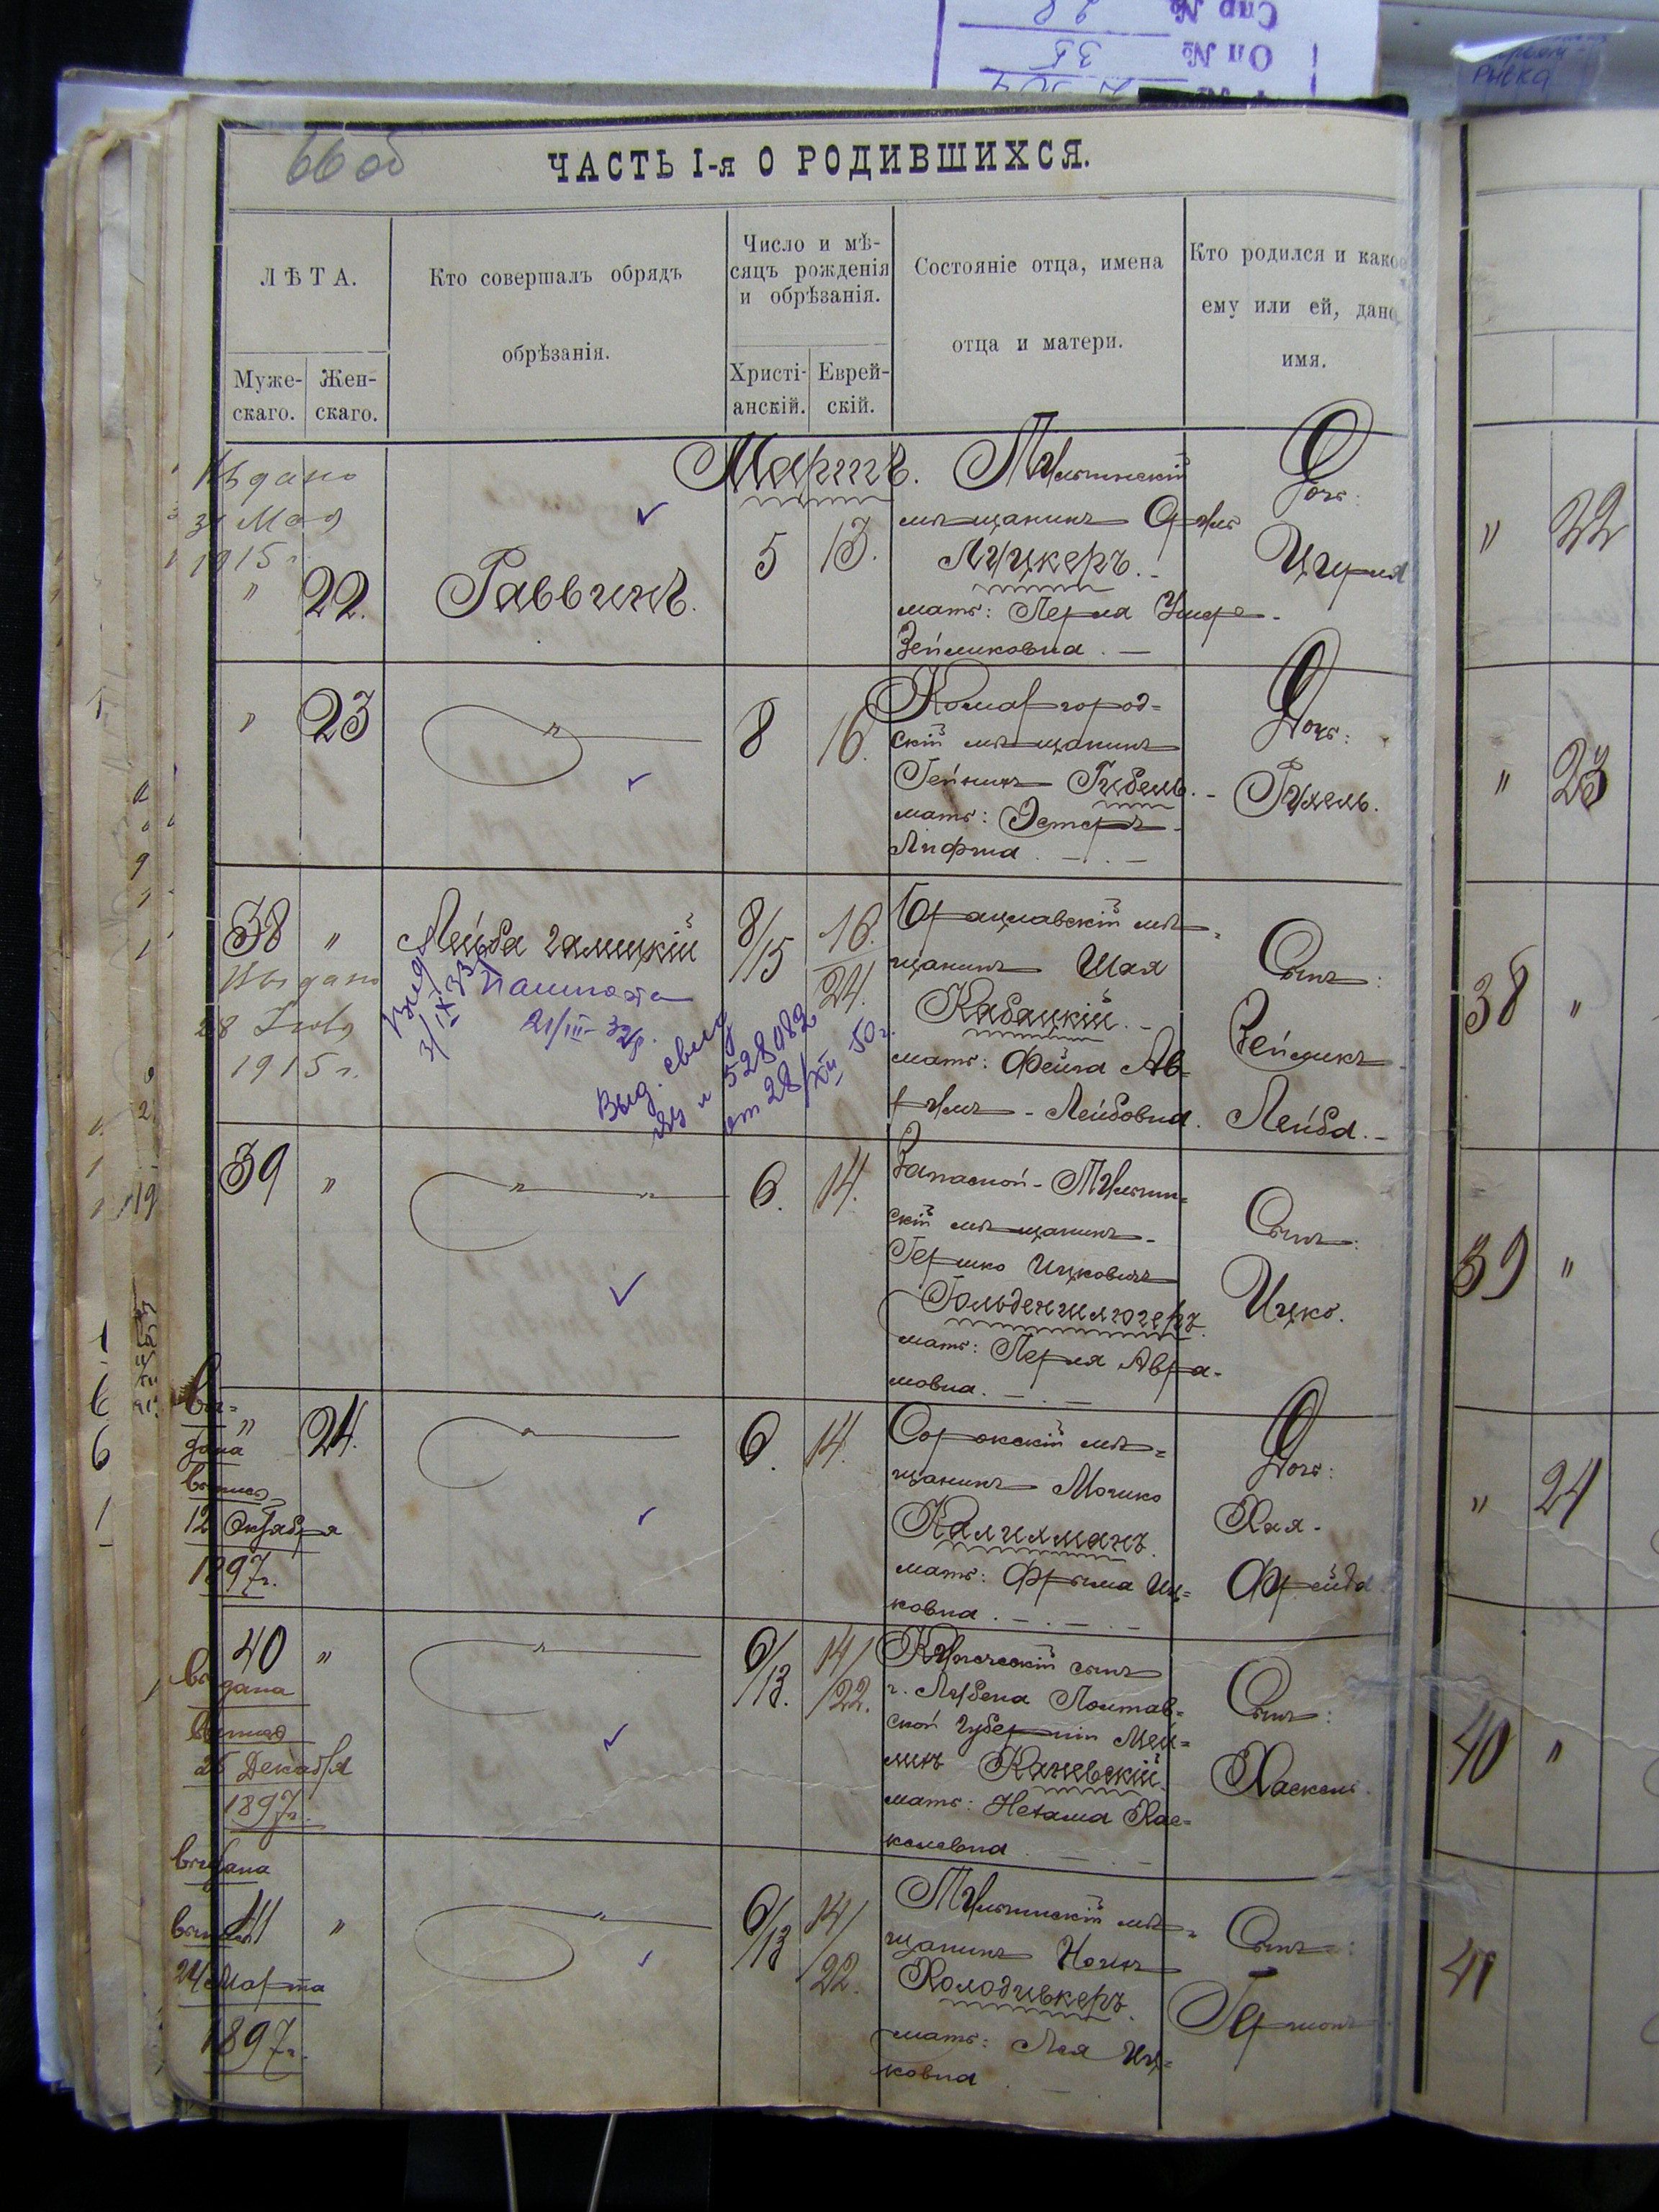 Спр № 28
Оп № 35
Рывка
66 об
ЧАСТЬ I-я О РОДИВШИХСЯ.
ЛѢТА.
Муже-
скаго.
Жен-
скаго.
Кто совершалъ обрядъ
обрѣзанія.
Число и мѣ-
сяцъ рожденія
и обрѣзанія.
Христі-
анскій.
Еврей-
скій.
Состояніе отца, имена
отца и матери.
Кто родился и какое
ему или ей, дано
имя.
Мартъ.
Выдано
31 Мая
1915 г.
" 22.
Раввинъ.
5 13.
Тульчинскій
мѣщанинъ
Луцкеръ.
мать: Перля
Зейликовна.
Дочь:
" 22
" 23
"
8 16.
Комаргород-
скій мѣщанинъ
Гейнихъ Гибель.
мать: Эстеръ
Дочь:
Гухель.
" 23
38 "
Выдано
28 Іюля
1915 г.
Лейба Галицкій
паспорта
21/III-32
3/IX 33
Выд. свид
528082
от 28/XII 50г.
8/15 16./24.
Брацлавскій мѣ-
щанинъ Шая
Кабацкій.
мать: Фейга Ав-
румъ-Лейбовна.
Сынъ:
Зейликъ
Лейба.
38 "
39 "
" "
6. 14.
Запасной-Тульчин-
скій мѣщанинъ
Гершко Ицковичъ
Гольденшлюгеръ.
мать: Перля Авра-
мовна.
Сынъ:
Ицко.
39 "
вы-
дана
выпись
12 Октября
1897г.
" 24.
"
6. 14.
Сорокскій мѣ-
щанинъ Мошко
Калихманъ.
мать: Фрыма Иц-
ковна.
Дочь:
Хая-
Фрейда
" 24
40 "
выдана
выпись
26 Декабря
1897г.
"
6/13. 14/22.
Купеческій сынъ
г. Лубена Полтав-
ской губерніи Мей-
лихъ Каневскій.
мать: Нехама Хас-
келевна
Сынъ:
Хаскель.
40 "
выдана
выпись
24 Марта
1897г.
41 "
"
6/13 14/22.
Тульчинскій мѣ-
щанинъ
Колодивкеръ.
мать: Лея Иц-
ковна
Сынъ:
Гершонъ.
41